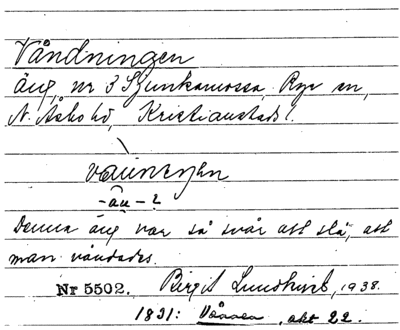 Våndningen
äng, nr 3 Sjunkamossa, Rye sn,
N. Åsbo hd, Kristianstads l.
-äu- ?
Denna äng var så svår att slå, att
man våndades.
Nr 5502. Birgit Lundkvist, 1938.
1831: akt 22.